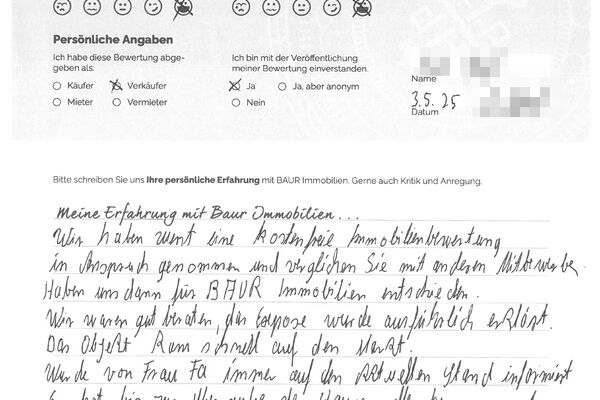 Persönliche Angaben
Ich habe diese Bewertung abge-
geben als:
Käufer Verkäufer
Mieter Vermieter
Ich bin mit der Veröffentlichung
meiner Bewertung einverstanden.
Ja Ja, aber anonym
Nein
Name
3.5.25
Datum
Bitte schreiben Sie uns Ihre persönliche Erfahrung mit BAUR Immobilien. Gerne auch Kritik und Anregung.
Meine Erfahrung mit Baur Immobilien...
Wir haben eine kostenfreie Immobilienbewertung
in Anspruch genommen und verglichen Sie mit anderen Mitbewerber.
Haben uns dann für BAUR Immobilien entschieden.
Wir waren gut beraten, das Expose wurde ausführlich erklärt.
Das Objekt kam schnell auf den Markt.
Wurde von Frau immer auf den aktuellen Stand informiert